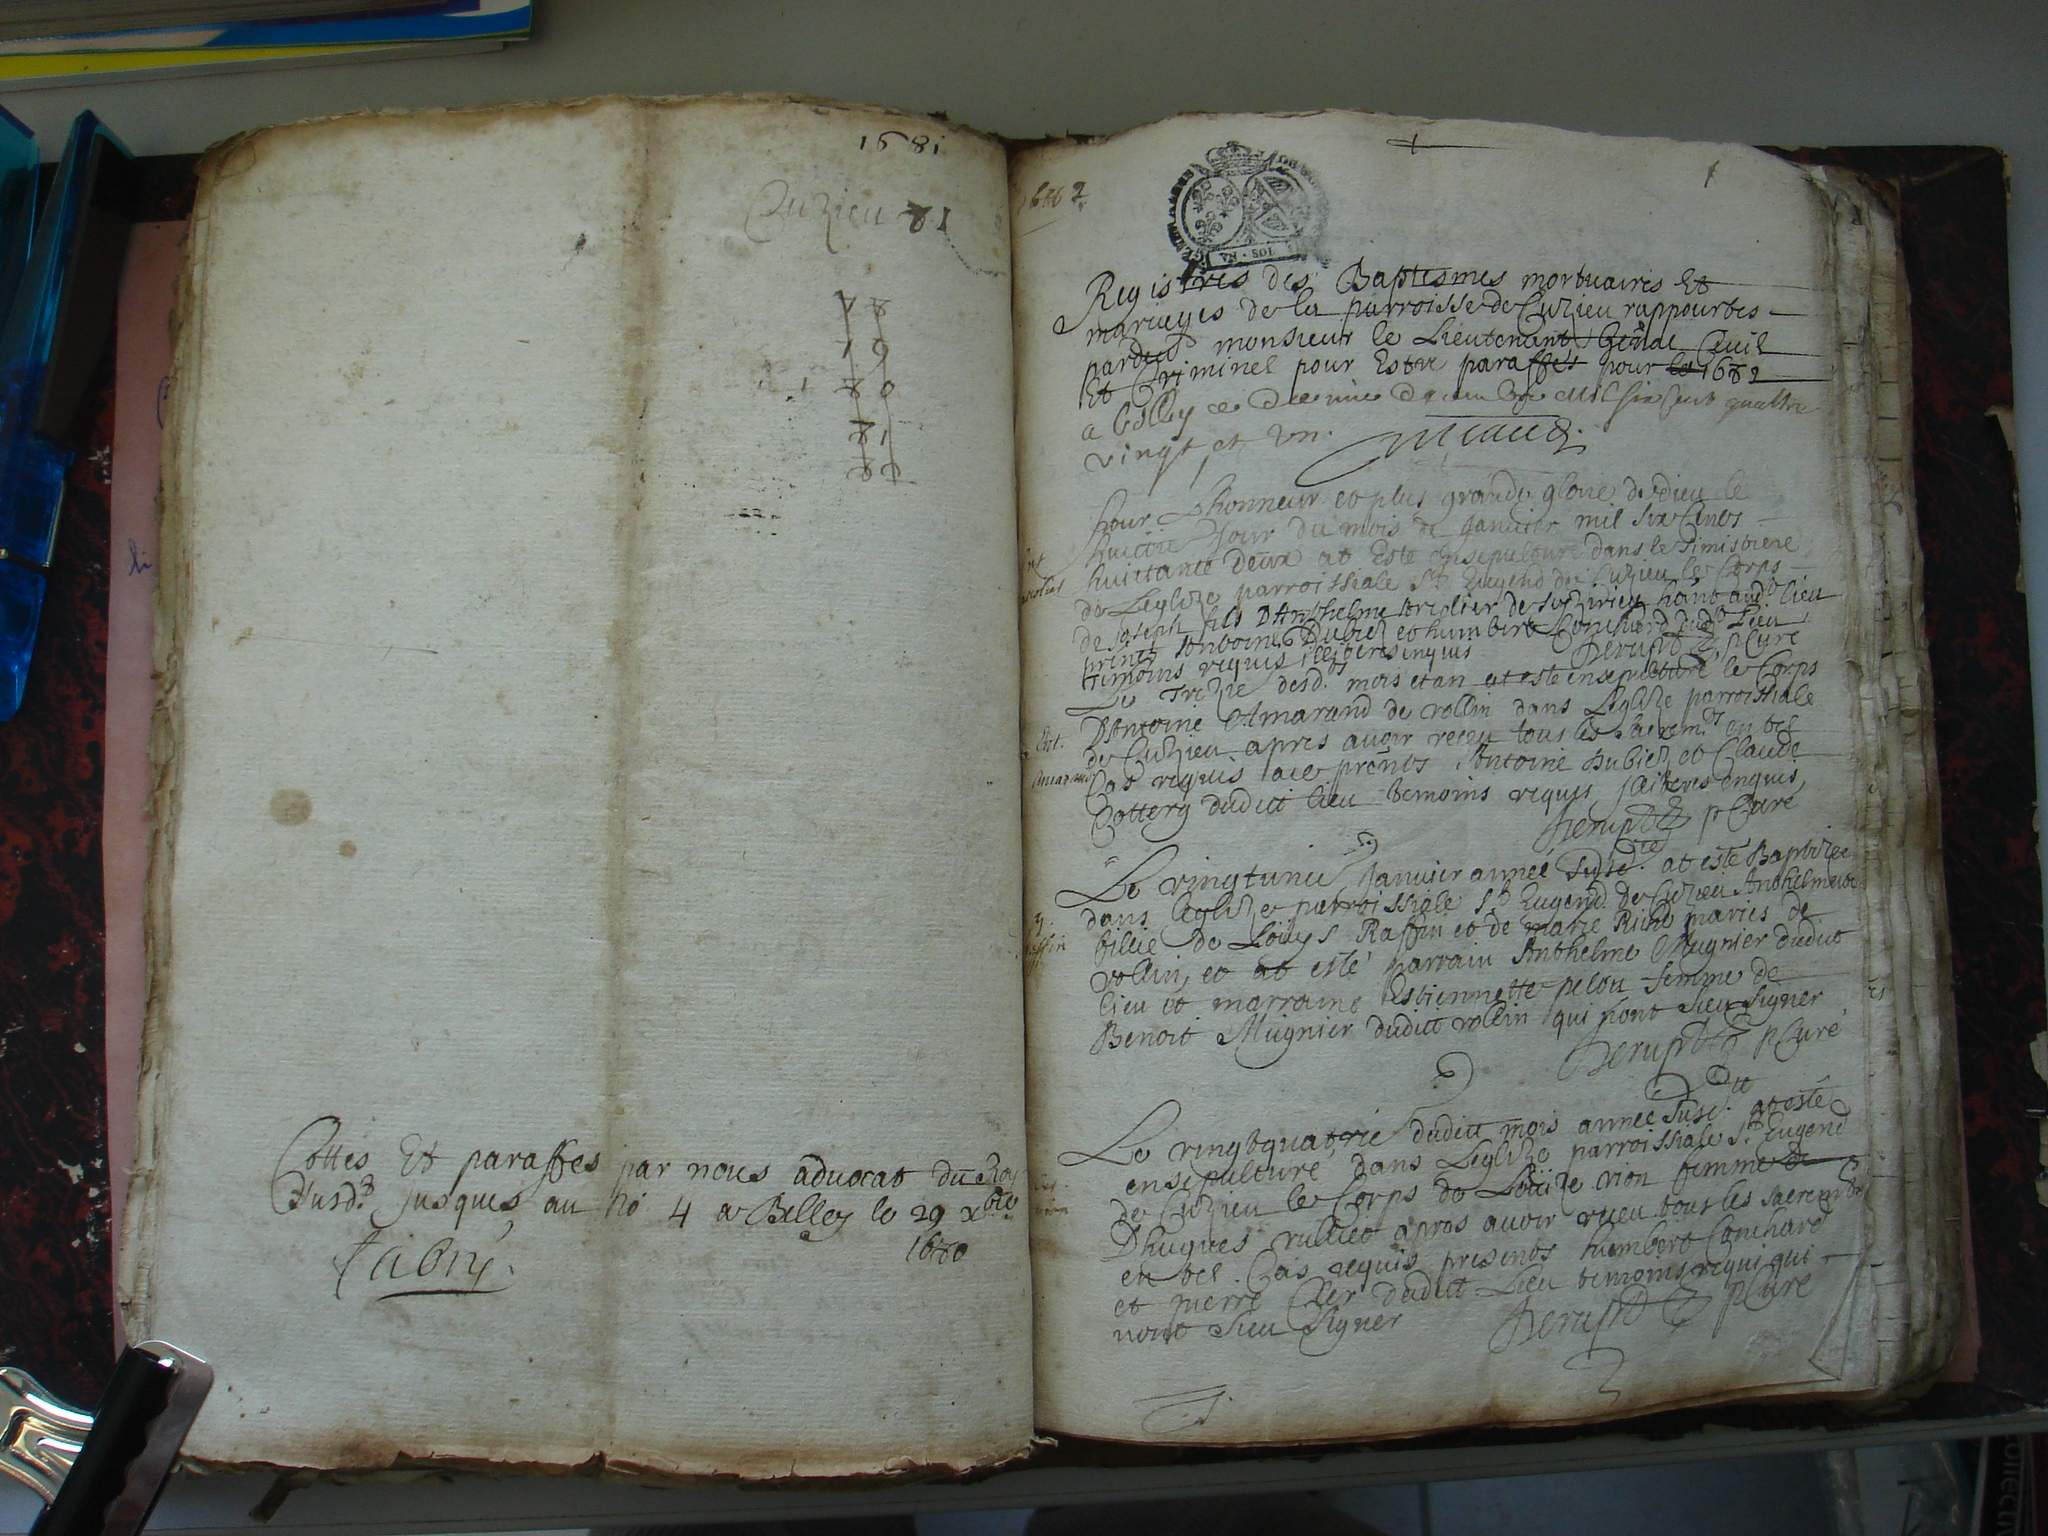 1681
Cuzieu 81
Cottes Et paraffes par nous advocat du Roy
jusques au no 4 a Belley le 29 xbre
1680
1682
1
SOL
Registres des Baptesmes mortuaires Et
mariages de la parroisse de Cuzieu rappourtes
pardvt monsieur le Lieutenant Genāl Civil
Et Criminel pour Estre paraffes pour le 1682
a belley ce decembre mil six cent quattre
vingt et un.
pour Lhonneur et plus grande gloire de dieu le
huictie Jour du mois de Janvier mil six Cents
huictante deux at Este Ensepulturé dans le Simistiere
de Leglize parroissiale St Eugend de Cuzieu le Corps
de Joseph fils DAnthelme de hānt audt lieu
prēnts Antoine Dubiez et humbert Conchard dudt Lieu
temoins requis illiteres enquis pCuré
Le Trezie desdts mois et an at este ensepulturé le Corps
DAntoine Amarand de rollin dans Leglize parroissiale
Ent.
de Cuzieu apres avoir receu tous les sacremts en tel
Amarand
Cas requis prēnts Antoine Dubiez et Claude
Cottery dudict lieu temoins requis illiteres enquis
pCuré
Le vingtunie Janvier année susdte at esté Baptizée
dans leglize parroissiale St Eugend De Cuzieu Anthelmette
fillie de Loüys Raffin et de marie mariés de
Raffin
rollin, et at esté parrain Anthelme Mugnier dudict
lieu et marraine Estiennette pelou femme de
Benoit Mugnier dudict rollin qui nont sceu signer
pCuré
Le vingtquatrie dudict mois année susdtt at esté
ensepulturé dans Leglize parroissiale St Eugend
de Cuzieu le Corps de Loüize vion femme de
Dhugues rulliet apres avoir receu tout les sacremts
en tel Cas requis presents humbert Conchard
et pierre dudict Lieu temoins requi qui
nont sceu signer pCuré